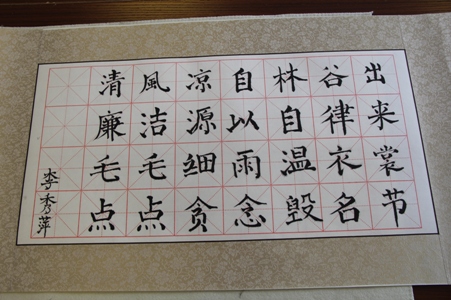 清風凉自林谷出
廉洁源以自律来
毛毛细雨温衣裳
点点贪念毁名节
李秀萍